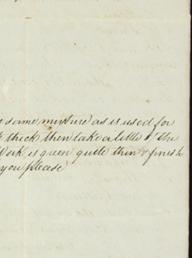 same mixture as is used for
thick then take a little of the
Work is green quite then & finish
you please